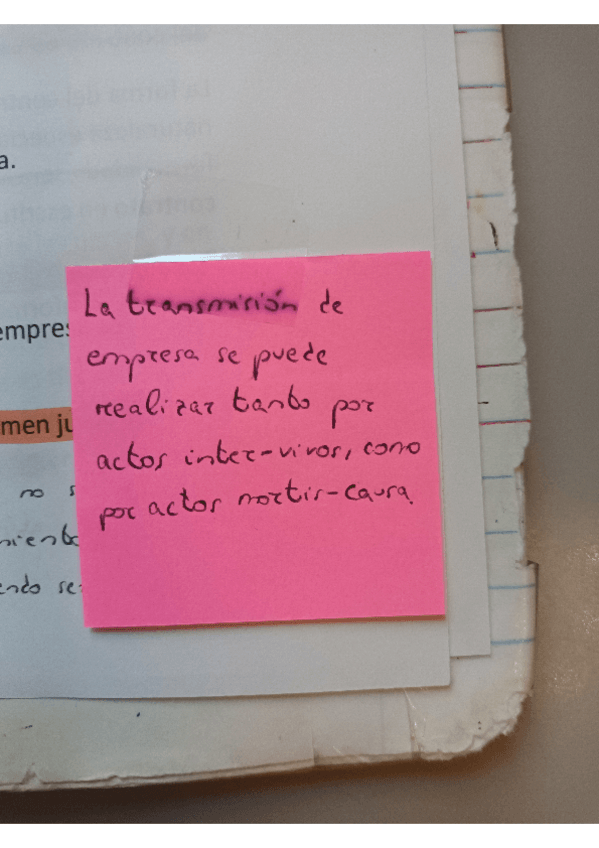 a.
empres
La transmisión de
empresa se puede
realizar tanto por
actos inter-vivos, como
por actos mortis-causa.
men ju
no s
miento
endo se